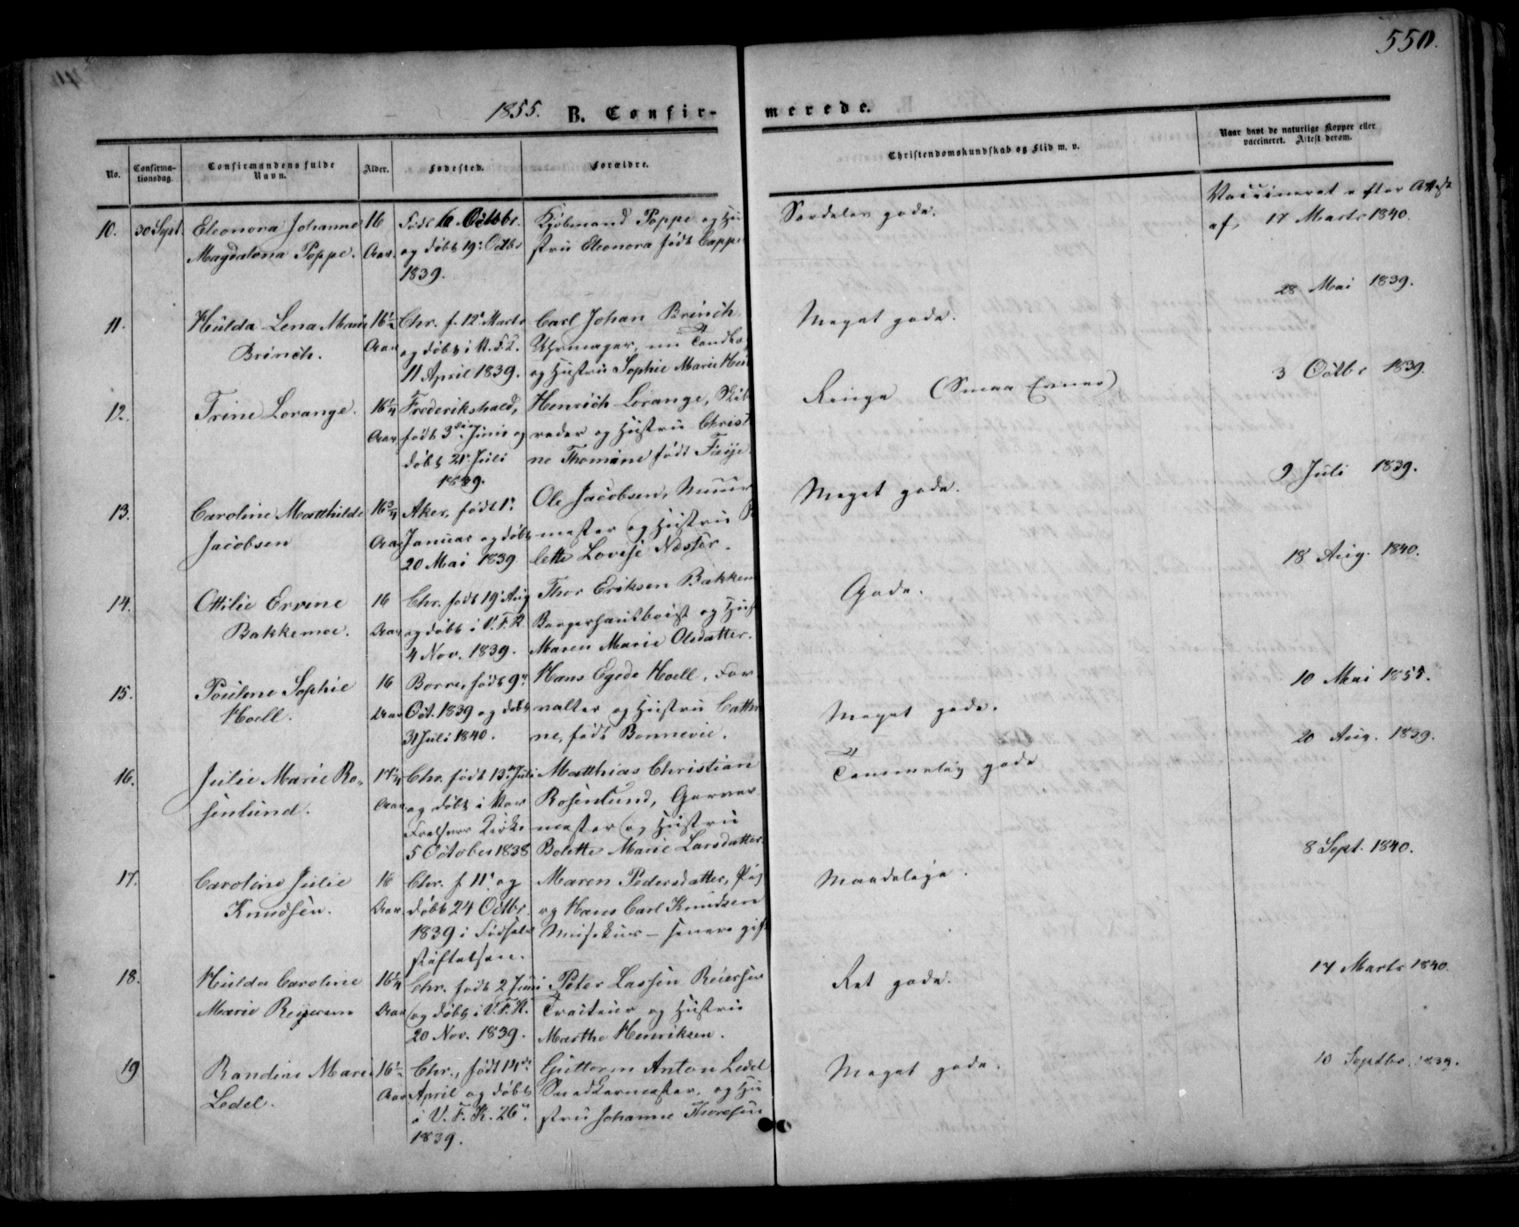 550.
1855. B. Confirmerede.
No. Confirmationsdag. Confirmandens fulde Navn. Alder. Fødested. Forældre. Christendomskundskab og Flid m. v. Naar havt de naturlige Kopper eller vaccineret. Attest derom.
10. 30 Sept. Eleonora Johanne 16 Født 6 Octobr. Kjøbmand Poppe og Hu Særdeles gode. Vaccineret efter Attest
Magdalena Poppe. Aar. og døbt 19. Octbr stru Eleonora født Cappe af, 17 Marts 1840.
1839.
11. Hulda Lena Marie 16½ Chr. f. 12 Marts Carl Johan Brinch Meget gode. 28 Mai 1839.
Brinch. Aar og døbt i V. F. K. Uhrmager, nu
11 April 1839. og Hustru Sophie Marie
12. Trine Lorange. 16¼ Frederikshald, Henrich Lorange, Ringe (Smaa Evner) 3 Octbr 1839.
Aar født 3die Junii og reder og Hustru Christi
døbt 21 Juli ne Thomine født
1839.
13. Caroline Matthilde 16¾ Aker, født 1. Ole Jacobsen, Muur Meget gode. 9 Juli 1839.
Jacobsen Aar Januar og døbt mester og Hustru
20 Mai 1839 lette Lovise
14. Ottilie Ervine 16 Chr. født 19 Aug Thor Eriksen Bakkem Gode. 18 Aug. 1840.
Bakkemoe. Aar og døbt i V. F. K og Hust
4 Nov. 1839. Maren Marie Olsdatter.
15. Pouline Sophie 16 Borre, født 9 Hans Egede Hoell, For Meget gode. 10 Mai 1855.
Hoell. Aar Oct. 1839 og døbt valter og Hustru Cathri
31 Juli 1840. ne, født Bonnevie.
16. Julie Marie Ro- 17¼ Chr. født 13 Juli Matthias Christian Temmelig gode 20 Aug. 1839.
senlund. Aar og døbt i Vor Rosenlund, Garver
Frelsers Kirke mester og Hustru
5 October 1838 Bolette Marie Larsdatter
17. Caroline Julie 16 Chr. f. 11 og Maren Pedersdatter, Pig Maadelige. 8 Sept. 1840.
Knudsen. Aar. døbt 24 Octbr. og Hans Carl Knudsen
1839 i Fødsels Musikus – senere gift
stiftelsen.
18. Hulda Caroline 16¼ Chr. født 2 Juni Peter Lassen Reiersen Ret gode. 17 Marts 1840.
Marie Reiersen Aar og døbt i V. F. K. Traiteur og Hustru
20 Nov. 1839. Marthe Henriksen.
19 Randine Marie 16½ Chr., født 14de Guttorm Anton Ledel Meget gode. 10 Septbr. 1839.
Ledel. Aar April og døbt Snedkermester, og Hu
i V. F. K. 26 stru Johanne Thoresen
1839.